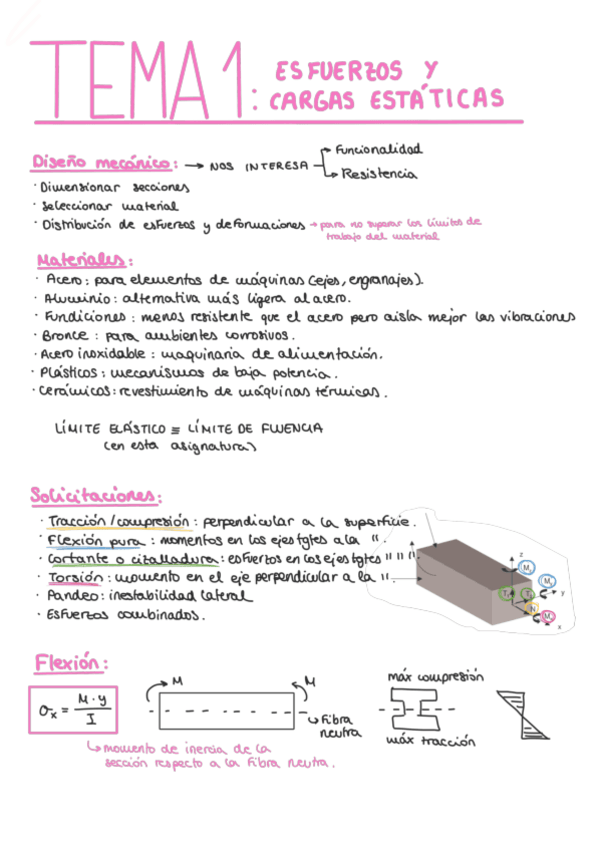 TEMA 1: ESFUERZOS Y
CARGAS ESTÁTICAS
Diseño mecánico: → NOS INTERESA
Funcionalidad
Resistencia
· Dimensionar secciones
· Seleccionar material
· Distribución de esfuerzos y deformaciones → para no superar los límites de
trabajo del material
Materiales:
· Acero: para elementos de máquinas (ejes, engranajes).
· Aluminio: alternativa más ligera al acero.
· Fundiciones: menos resistente que el acero pero aisla mejor las vibraciones
· Bronce: para ambientes corrosivos.
· Acero inoxidable: maquinaria de alimentación.
· Plásticos: mecanismos de baja potencia.
· Cerámicos: revestimiento de máquinas térmicas.
LÍMITE ELÁSTICO ≡ LÍMITE DE FLUENCIA
(en esta asignatura)
Solicitaciones:
· Tracción/compresión: perpendicular a la superficie.
· Flexión pura: momentos en los ejes tgtes a la ".
· Cortante o cizalladura: esfuerzos en los ejes tgtes " " ".
· Torsión: momento en el eje perpendicular a la ".
· Pandeo: inestabilidad lateral
· Esfuerzos combinados.
z
y
N
x
Flexión:
σx = M·y / I
M
M
Fibra
neutra
máx compresión
máx tracción
momento de inercia de la
sección respecto a la Fibra Neutra.